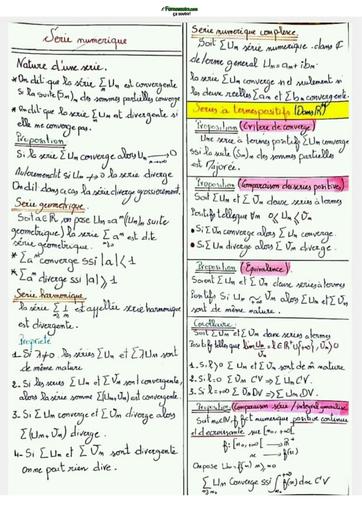 Formamaths.com
ça roule!
Serie numerique
Nature d'une serie.
* On dit que la série ΣUn est convergente
si la suite (Sn)n des sommes partielles converge
* On dit que la serie ΣUn est divergente si
elle ne converge pas.
Proposition
Si la serie ΣUn converge alors Un → 0
Autrement dit si Un ↛ 0 la serie diverge
On dit dans ce cas la série diverge grossierement.
Serie geometrique.
Soit a∈ℝ on pose Un = a^n (Un la suite
geometrique) la serie Σ a^n est dite
série geometrique.
* Σ a^n converge ssi |a| < 1
* Σ a^n diverge ssi |a| ≥ 1
Serie harmonique
la serie Σ 1/n est appellée serie harmonique
est divergente.
Propriete
1. Si λ≠0 les séries ΣUn et ΣλUn sont
de même nature
2. Si les series ΣUn et ΣVn sont convergente,
alors la série somme Σ(Un+Vn) est convergente.
3. Si ΣUn converge et ΣVn diverge alors
Σ(Un+Vn) diverge.
4. Si ΣUn et ΣVn sont divergente
on ne peut rien dire.
Serie numerique complexe
Soit ΣUn série numerique dans ℂ
de terme general Un = an + ibn.
la serie ΣUn converge si et seulement si
les deux reelles Σan et Σbn convergente.
Series a termes positifs (Dans ℝ+)
Proposition (Critere de converge)
Une serie à termes positifs ΣUn converge
ssi la suite (Sn)n des sommes partielles
est majorée.
Proposition (Comparaison des series positives)
Soit ΣUn et ΣVn deux series à termes
Positifs telles que ∀n 0 ≤ Un ≤ Vn
• Si ΣVn converge alors ΣUn converge.
• Si ΣUn diverge alors ΣVn diverge.
Proposition (Equivalence)
Soient ΣUn et ΣVn deux series à termes
Positifs Si Un ~ Vn alors ΣUn et ΣVn
sont de même nature.
Corollaire
Soit ΣUn et ΣVn deux series a termes
Positifs telles que lim Un/Vn = l ∈ ℝ+∪{+∞}, Vn>0
1. Si l>0 ΣUn et ΣVn sont de même nature
2. Si l=0 ΣVn CV ⇒ ΣUn CV.
3. Si l=+∞ ΣVn DV ⇒ ΣUn DV.
Proposition (Comparaison série / integral generalisee
Soit n₀∈ℕ, f fct numerique positive continue
et decroissante sur [n₀,+∞[
f: [n₀,+∞[ → ℝ+
x → f(x)
On pose Un = f(n) n ≥ n₀
ΣUn Converge ssi ∫ f(x) dx CV